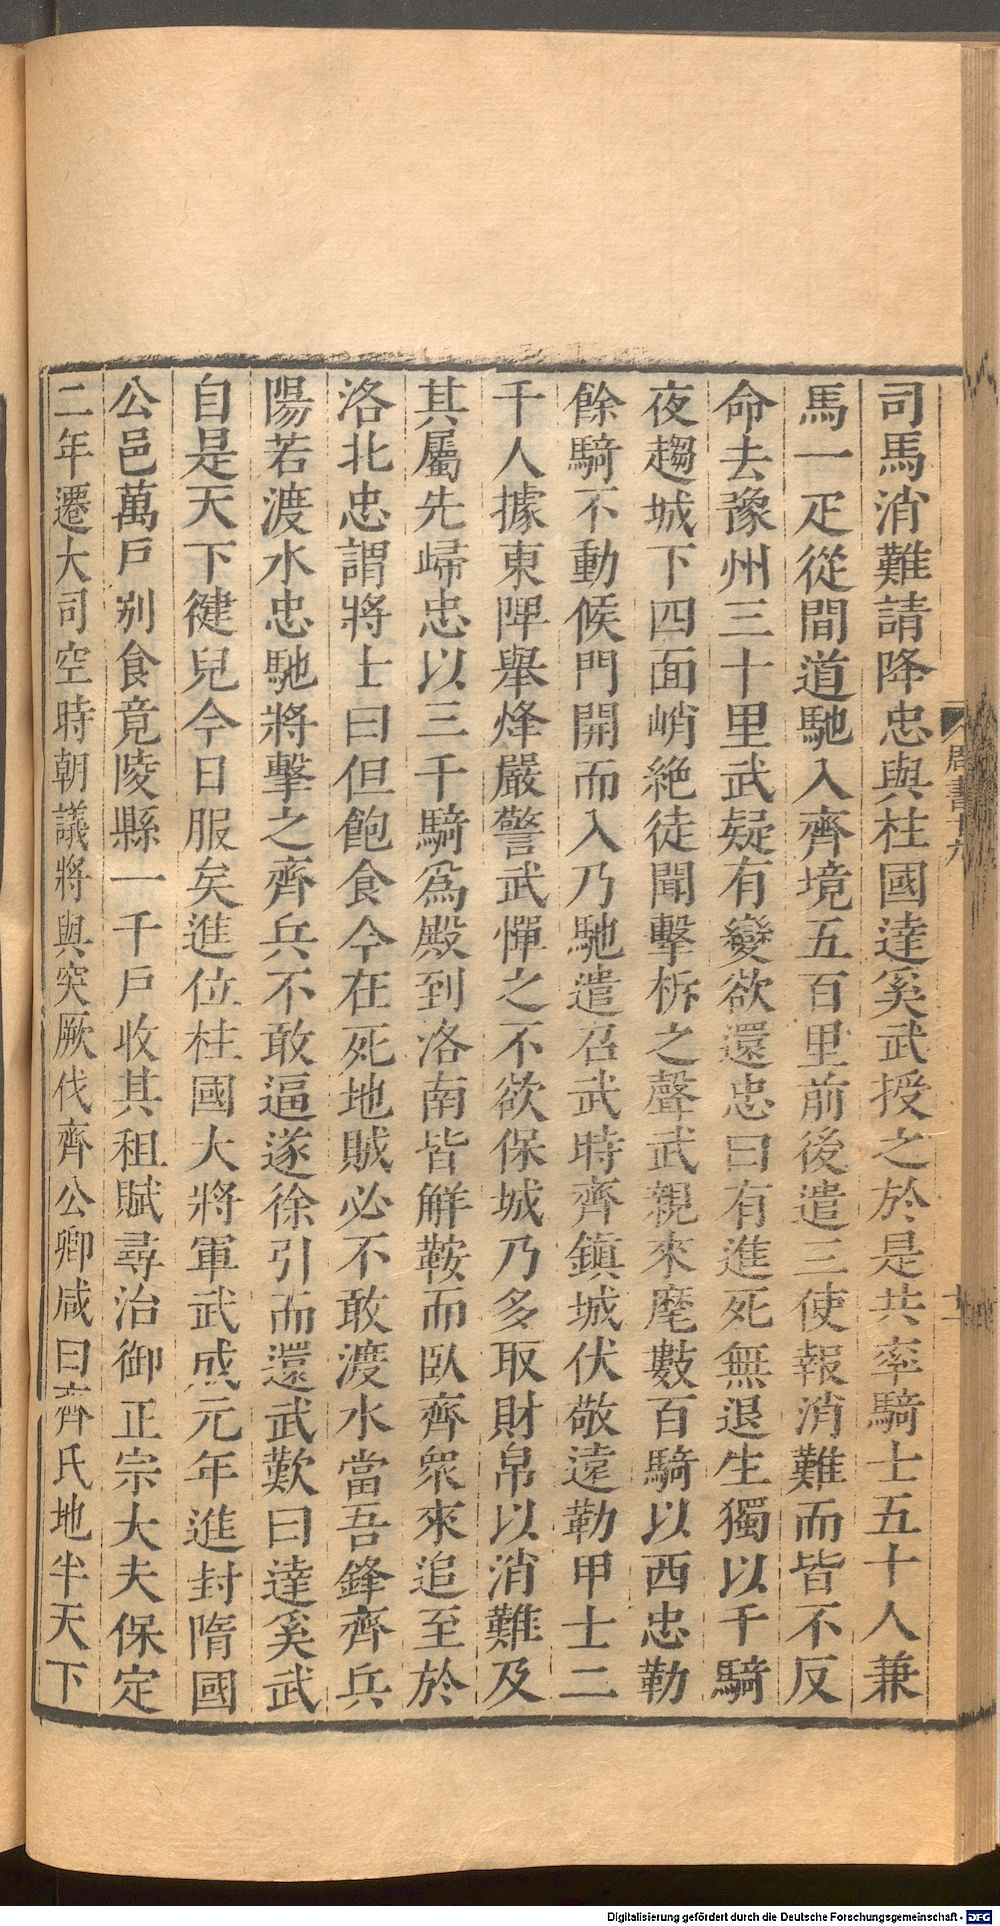 司馬消難請降忠與柱國達奚武授之於是共率騎士五十人兼
馬一疋從間道馳入齊境五百里前後遣三使報消難而皆不反
命去豫州三十里武疑有變欲還忠曰有進死無退生獨以千騎
夜趨城下四面峭絶徒聞擊柝之聲武親來麾數百騎以西忠勒
餘騎不動候門開而入乃馳遣召武時齊鎮城伏敬遠勒甲士二
千人據東陴舉烽嚴警武憚之不欲保城乃多取財帛以消難及
其屬先歸忠以三千騎爲殿到洛南皆觧鞍而臥齊衆來追至於
洛北忠謂將士曰但飽食今在死地賊必不敢渡水當吾鋒齊兵
陽若渡水忠馳將擊之齊兵不敢逼遂徐引而還武歎曰達奚武
自是天下健兒今日服矣進位柱國大將軍武成元年進封隋國
公邑萬戸别食竟陵縣一千戸收其租賦尋治御正宗大夫保定
二年遷大司空時朝議將與突厥伐齊公卿咸曰齊氏地半天下
周書十九
十一
Digitalisierung gefördert durch die Deutsche Forschungsgemeinschaft - DFG